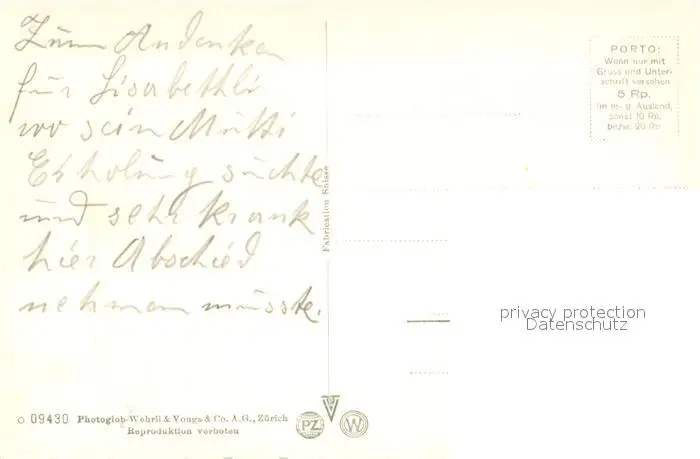 Zum Andenken
für Lisabethli
wo sein Mutti
Erholung suchte
und sehr krank
hier Abschied
nehmen müsste.
Fabrication Suisse
PORTO:
Wenn nur mit
Gruss und Unter-
schrift versehen
5 Rp.
im m- g. Ausland,
sonst 10 Rp.
bezw. 20 Rp.
privacy protection
Datenschutz
09430 Photoglob-Wehrli & Vouga & Co. A.G., Zürich
Reproduktion verboten
PZ
W